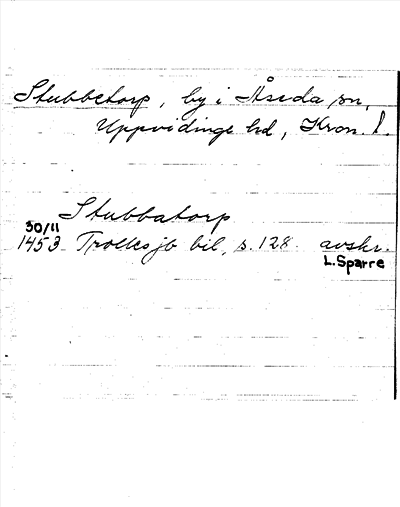 Stubbetorp, by i Åseda sn,
Uppvidinge hd, Kron. l.
Stubbatorp
30/11
1453 Trollesjb bil, s. 128. avskr.
L. Sparre